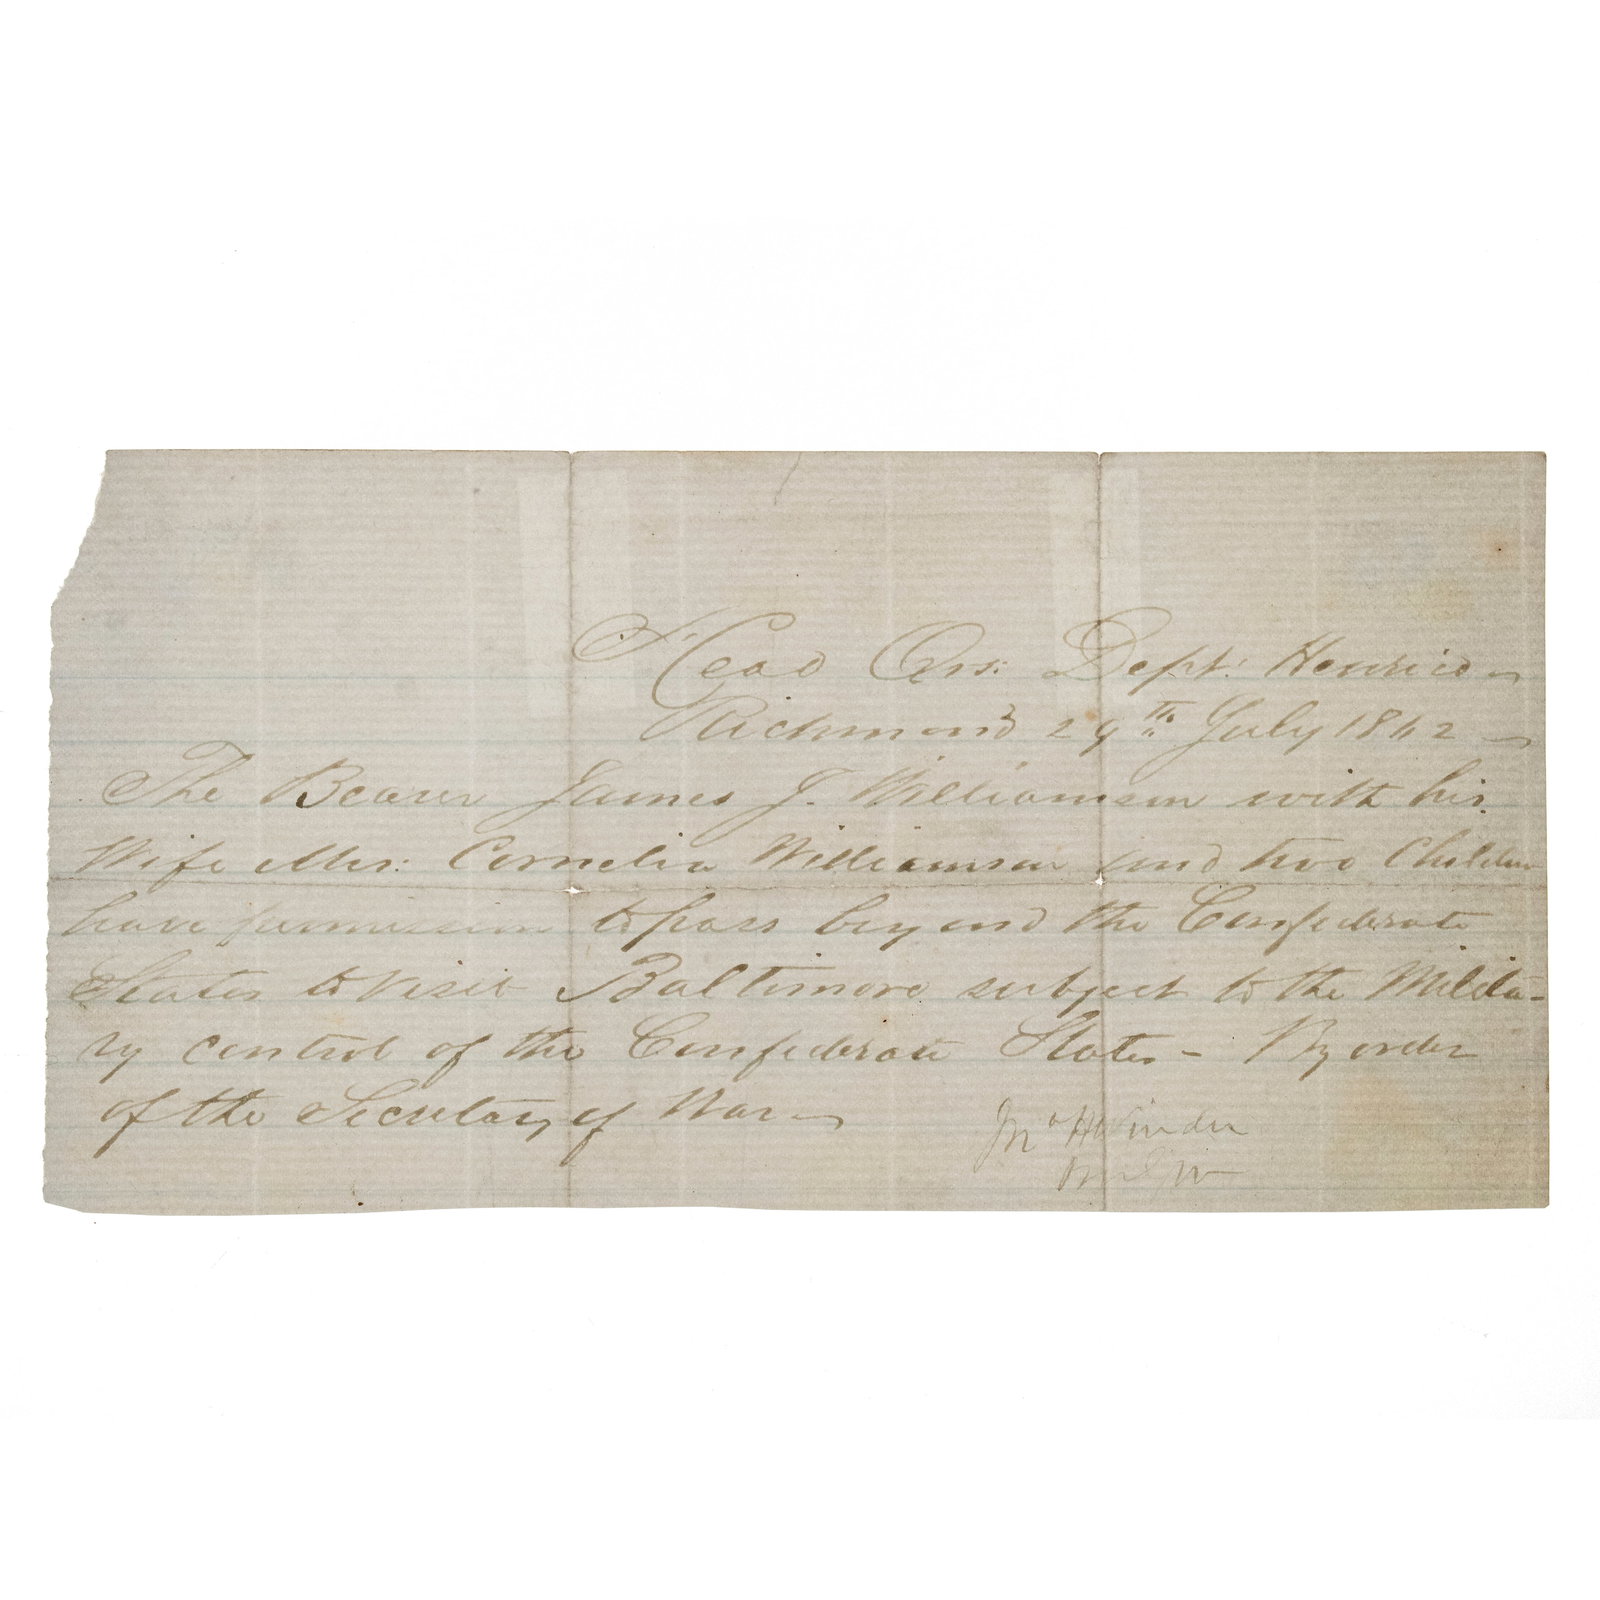 Head Qrs: Dept: Henrico
Richmond 29th July 1862
The Bearer James J. Williamson with his
Wife Mrs: Cornelia Williamson and two Children
have permission to pass beyond the Confederate
States to visit Baltimore subject to the Milita-
ry control of the Confederate States - By order
of the Secretary of War
Jno H Winder